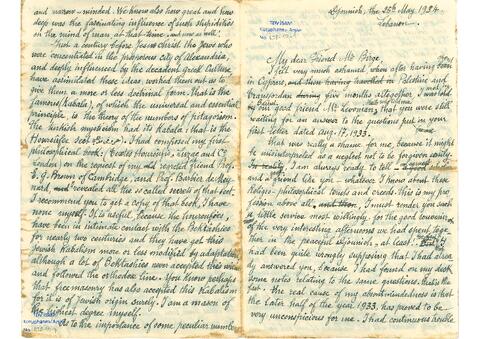 and narrow-minded. We know also how great and how
deep was the fascinating influence of such stupidities
on the mind of man at that time, and now as well!
Just a century before Jesus Christ the Jews who
were concentrated in the prosperous city of Alexandria,
and deeply influenced by the decadent Greek culture,
have assimilated these ideas, worked them out so to
give them a more or less doctrinal form. That is the
famous (Kabala), of which the universal and essential
principle, is the theory of the numbers of pitagorism.
The turkish mysticism had its Kabala: that is the
Houroufee sect. I had composed my first
philosophical book: (Textes Houroufis, Luzac and Co.
London) on the request of my old honored friend Prof.
E. G. Brown of Cambridge, and Prof. Barbier de Mey-
nard, revealed all the so called secrets of that book.
I recommend you to get a copy of that book, I have
none myself. It is useful, because the houroufees
have been in intimate contact with the Bektashies
for nearly two centuries and they have got this
Jewish Kabalism more or less modified by adaptation
although a lot of Bektashies soon accepted this idea
and followed the orthodox line. You know perhaps
that freemasonry has also accepted this Kabalism
for it is of Jewish origin surely. I am a mason of
the highest degree myself.
As to the importance of some peculiar numbers
Djounieh, the 25th May, 1934
Lebanon.
My dear Friend Mr Birge
I felt very much ashamed when after having been
in Cyprus, Palestine and
Transjordan five months altogether, I was told
by our good friend Mr. that you were still
waiting for an answer to the questions put in your
first letter dated Aug. 17, 1933.
That was really a shame for me, because it might
be misinterpreted as a neglect not to be forgiven easily.
I am always ready to tell
and a friend like you - whatever I know about these
Religio-philosophical tenets and creeds. This is my pro-
fession above all. I must render you such
a little service most willingly, for the good souvenir of
of the very interesting afternoons we had spent toge-
ther in the peaceful Djounieh, at least!
had been quite wrongly supposing that I had alrea-
dy answered you, because I had found on my desk
some notes relating to the same questions.
the real cause of my absentmindedness is that
the later half of the year 1933, has proved to be
very unconspicious for me. I had continuous trouble